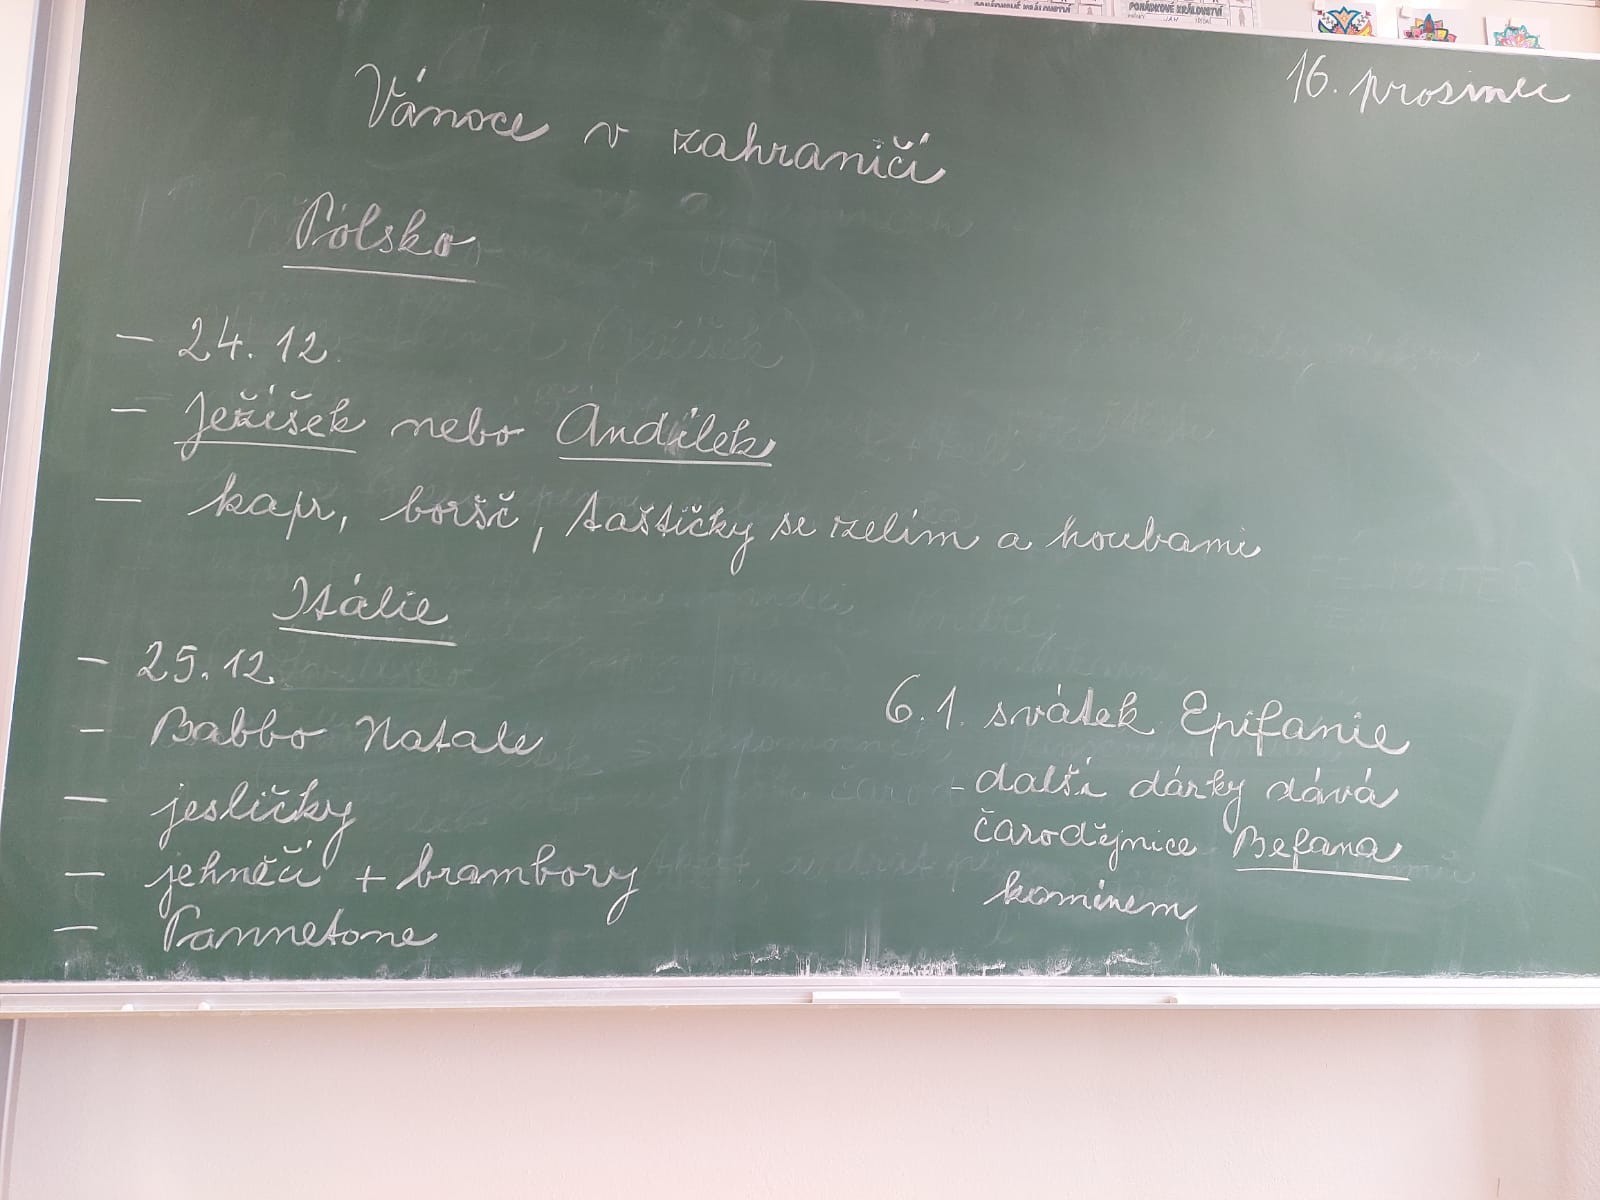 POŘÁDKOVÉ KRÁLOVSTVÍ
16. prosinec
Vánoce v zahraničí
Polsko
- 24. 12.
- Ježíšek nebo Andílek
- kapr, boršč, taštičky se zelím a houbami
Itálie
- 25. 12.
- Babbo Natale
- jesličky
- jehněčí + brambory
- Pannetone
6. 1. svátek Epifanie
- další dárky dává
čarodějnice Befana
komínem